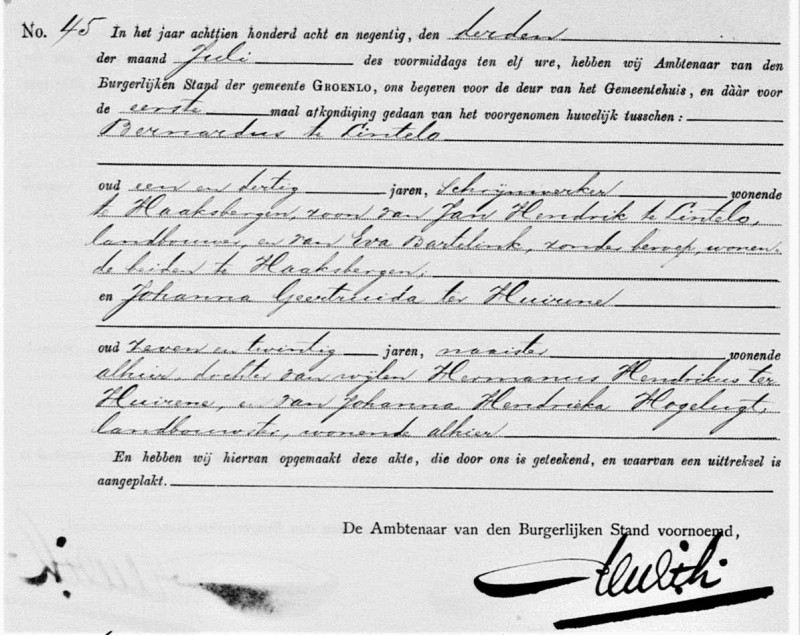 No. 45 In het jaar achttien honderd acht en negentig, den derden
der maand Juli des voormiddags ten elf ure, hebben wij Ambtenaar van den
Burgerlijken Stand der gemeente GROENLO, ons begeven voor de deur van het Gemeentehuis, en dààr voor
de eerste maal afkondiging gedaan van het voorgenomen huwelijk tusschen:
Bernardus te Lintelo
oud een en dertig jaren, Schrijnwerker wonende
te Haaksbergen, zoon van Jan Hendrik te Lintelo,
landbouwer, en van Eva Bartelink, zonder beroep, wonen-
de beiden te Haaksbergen;
en Johanna Geertruida ter Huirene
oud zeven en twintig jaren, naaister wonende
alhier, dochter van wijlen Hermanus Hendrikus ter
Huirene, en van Johanna Hendrieka Hogeligt,
landbouwster, wonende alhier
En hebben wij hiervan opgemaakt deze akte, die door ons is geteekend, en waarvan een uittreksel is
aangeplakt.
De Ambtenaar van den Burgerlijken Stand voornoemd,